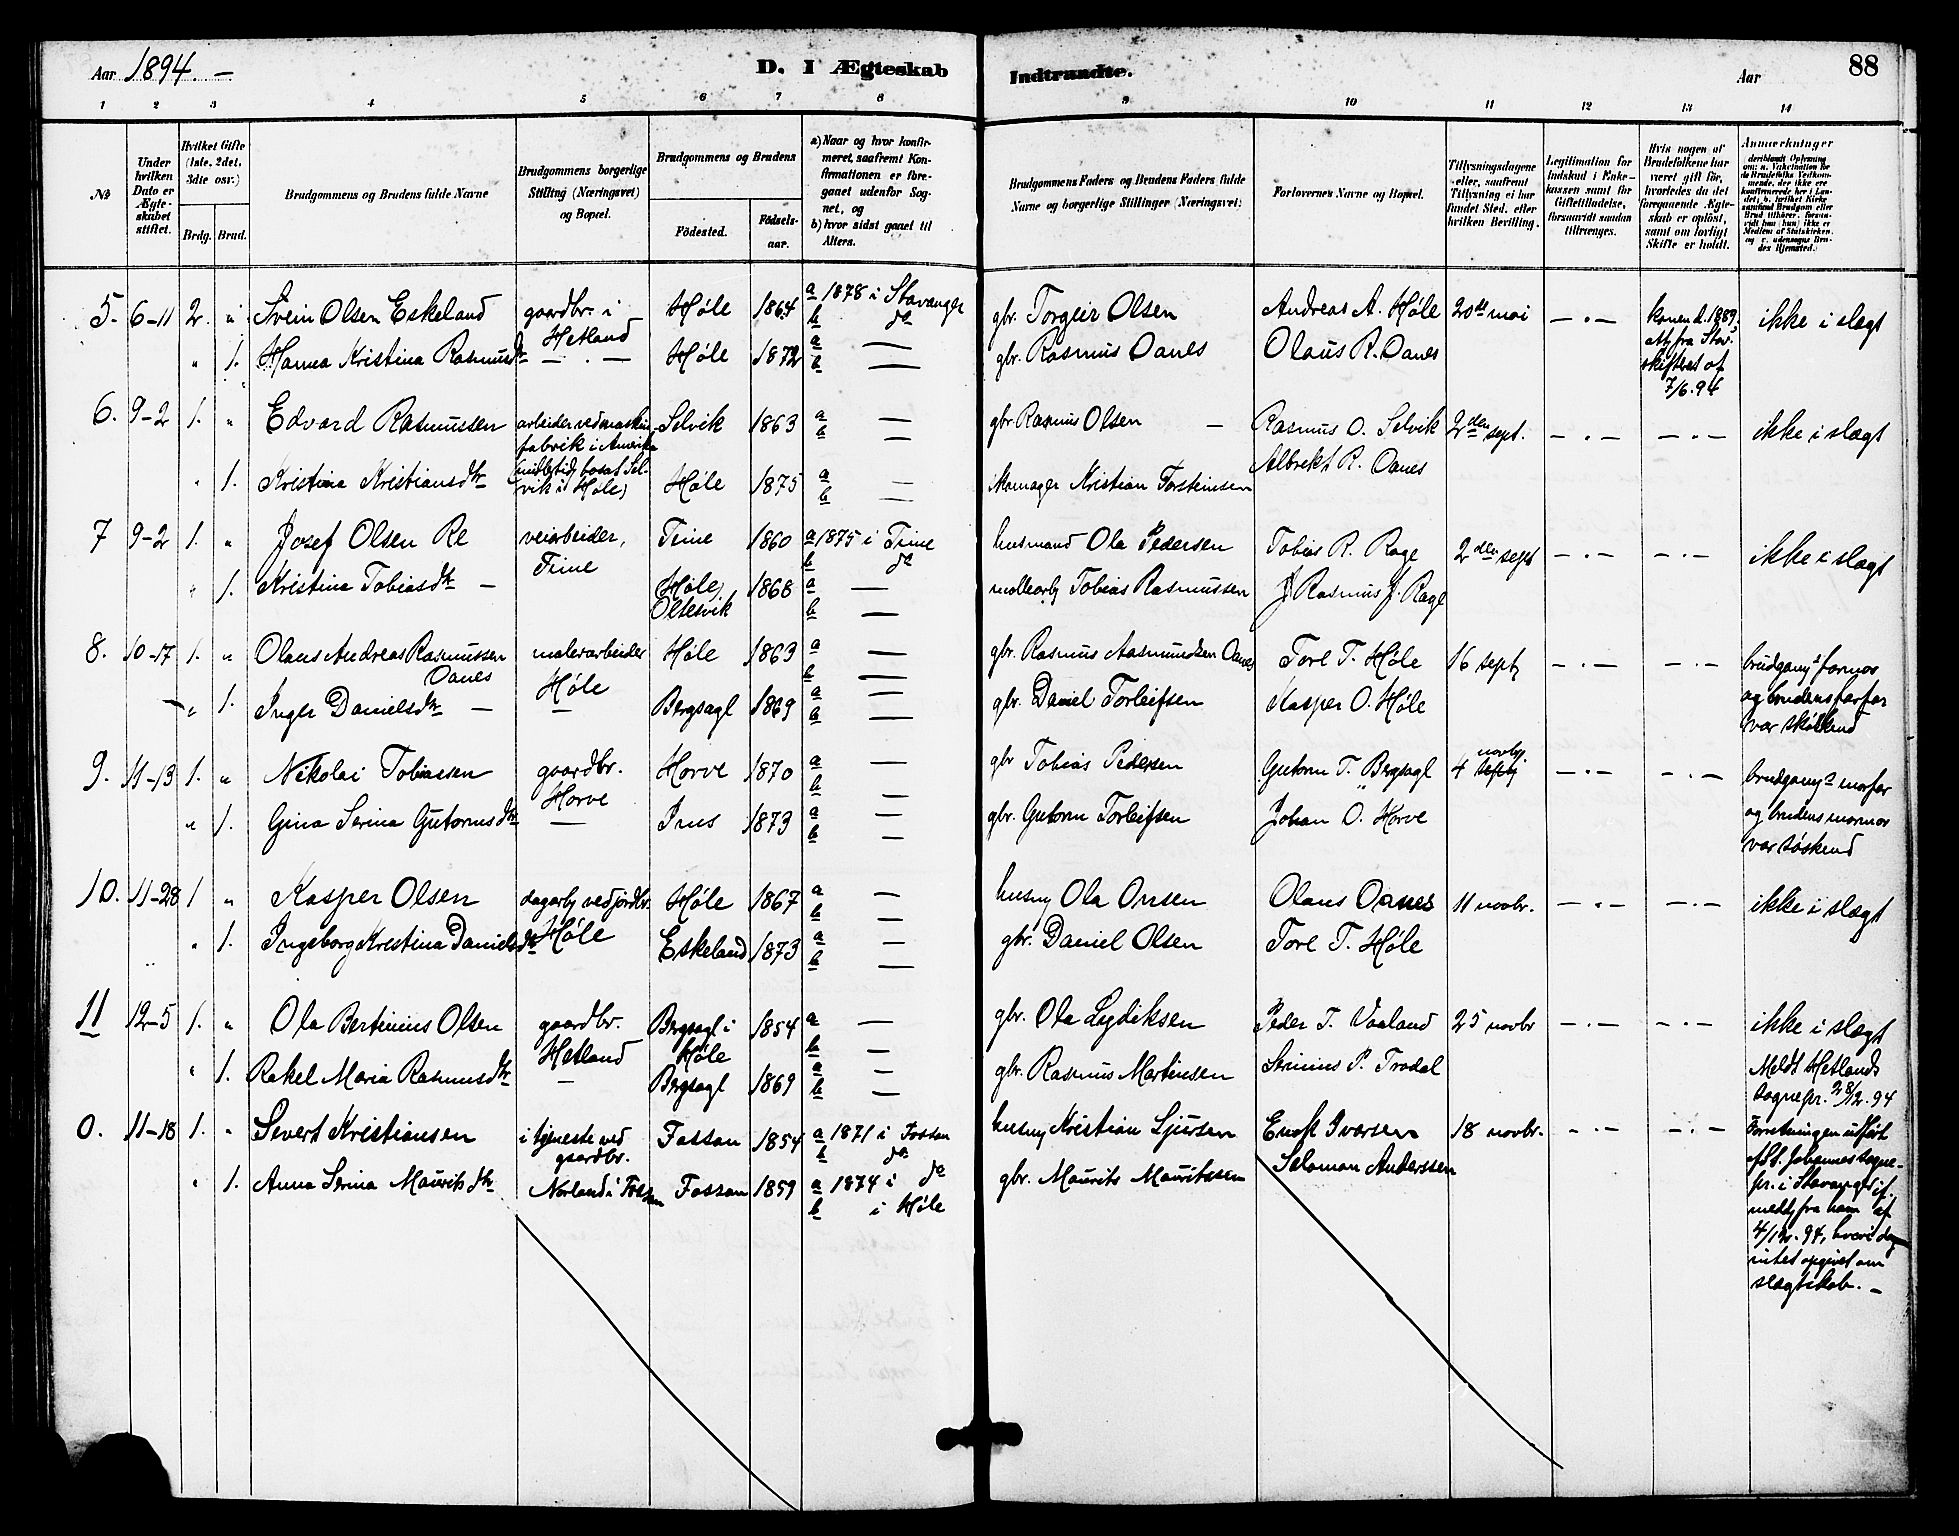 Aar 1894. —
D. I Ægteskab
Indtraadte.
Aar
88
1 2 3 4 5 6 7 8 9 10 11 12 13 14
№
Under hvilken Dato er Ægteskabet stiftet.
Hvilket Gifte (1ste, 2det, 3die osv.)
Brdg. Brud.
Brudgommens og Brudens fulde Navne
Brudgommens borgerlige Stilling (Næringsvei) og Bopæl.
Brudgommens og Brudens
Födested.
Födsels-aar.
a) Naar og hvor konfirmeret, saafremt Konfirmationen er foregaaet udenfor Sognet, og
b) hvor sidst gaaet til Alters.
Brudgommens Faders og Brudens Faders fulde Navne og borgerlige Stillinger (Næringsvei)
Forlovernes Navne og Bopæl.
Tillysningsdagene eller, saafremt Tillysning ei har fundet Sted, efter hvilken Bevilling.
Legitimation for Indskud i Enkekassen samt for Giftetilladelse, forsaavidt saadan tiltrænges.
Hvis nogen af Brudefolkene har været gift för, hvorledes da det foregaaende Ægteskab er oplöst, samt om lovligt Skifte er holdt.
Anmærkninger
5. 6-11 2. „ Svein Olsen Eskeland gaardbr. i Hetland Høle 1864 a 1878 i Stavanger b do gbr. Torgeir Olsen Andreas A. Høle 20de mai — . — konen d. 1889, att. fra Stav. skifteret af 7/6.94 ikke i slægt
„ 1. Hanna Kristina Rasmusdtr — . — Høle 1872 a — b — gbr. Rasmus Oanes Olaus R. Oanes
6. 9-2 1. „ Edvard Rasmussen arbeider ved maskinfabrik i Amerika (midlertid. bosat Selvik i Høle) Selvik 1863 a — b — gbr. Rasmus Olsen — Rasmus O. Selvik 2den sept. — . — — . — ikke i slægt
„ 1. Kristina Kristiansdtr Høle 1875 a — b — skomager Kristian Torsteinsen Albrekt R. Oanes
7 9-2 1. „ Josef Olsen Re veiarbeider, Time Time 1860 a 1875 i Time b do husmand Ola Pedersen Tobias R. Rage 2den sept — . — — . — ikke i slægt
„ 1. Kristina Tobiasdtr — Høle, Oltesvik 1868 a — b — mollearb. Tobias Rasmussen Rasmus J. Rage
8. 10-17 1. „ Olaus Andreas Rasmussen Oanes malerarbeider Høle Høle 1863 a — b — gbr. Rasmus Aasmundsen Oanes Tore T. Høle 16 septbr — . — — . — brudgom.s farmor og brudens farfar var søskend
„ 1. Inger Danielsdtr — — Bergsagl 1869 a — b — gbr. Daniel Torleifsen Kasper O. Høle
9. 11-13 1. „ Nikolai Tobiassen gaardbr. Horve Horve 1870 a — b — gbr Tobias Pedersen Gutorm T. Bergsagl 4 novbr — . — — . — brudgom.s morfar og brudens mormor var søskend
„ 1. Gina Serina Gutormsdtr — Ims 1873 a — b — gbr. Gutorm Torleifsen Johan O. Horve
10. 11-28 1 „ Kasper Olsen dagarb. ved jordbr. Høle Høle 1867 a — b — husm. Ola Omsen Olaus Oanes 11 novbr. — . — — . — ikke i slægt
„ 1. Ingeborg Kristina Danielsdtr Eskeland 1873 a — b — gbr. Daniel Olsen Tore T. Høle
11 12-5 1. „ Ola Bertinius Olsen gaardbr. Hetland Bergsagl i Høle 1854 a — b — gbr. Ola Lydiksen Peder T. Vaaland 25 novbr — . — — . — ikke i slægt Meldt Hetlands sognepr. 28/12.94
„ 1. Rakel Maria Rasmusdtr — Bergsagl 1869 a — b — gbr. Rasmus Martinsen P. Trodal
0. 11-18 1. „ Severt Kristiansen i tjeneste ved gaardbr. Fossan 1854 a 1871 i Fossan b do husm. Kristian Sjursen Enok Iversen 18 novbr. — . — — . — Forretningen udført af St. Johannes sognepr. i Stavanger if. medd. fra ham af 4/12.94, hvori dog intet opgivet om slægtskab. —
„ 1. Anna Serina Mauritsdtr Norland i Fossan Fossan 1859 a 1874 i do b i Høle gbr. Maurits Mauritssen Salomon Anderssen